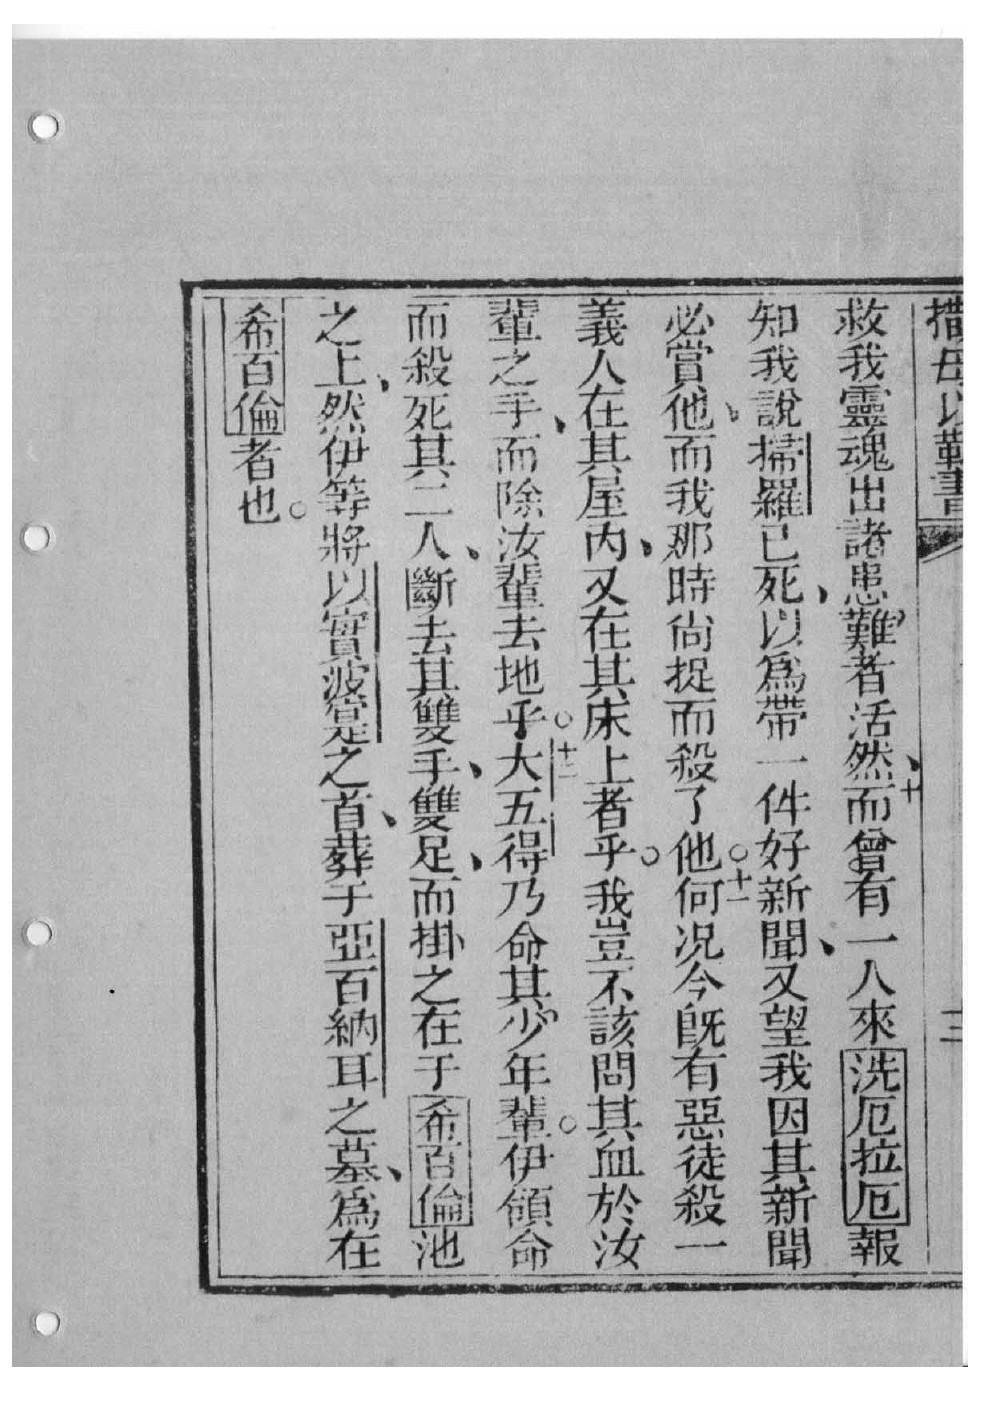 撒母以勒書
二
救我靈魂出諸患難者活然、十而曾有一人來洗厄拉厄報
知我說掃羅已死、以爲帶一件好新聞、又望我因其新聞
必賞他、而我那時尚捉而殺了他。十一何况今既有惡徒殺一
義人在其屋內、又在其床上者乎。我豈不該問其血於汝
輩之手、而除汝輩去地乎。十二大五得乃命其少年輩。伊領命
而殺死其二人、斷去其雙手、雙足、而掛之在于希百倫池
之上、然伊等將以實波寔之首、葬于亞百納耳之墓、爲在
希百倫者也。